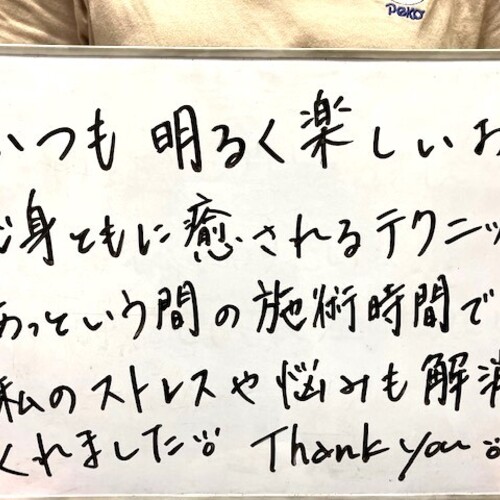 PeKo
いつも 明るく楽しいお
心身ともに癒されるテクニッ
あっという間の施術時間で
私のストレスや悩みも解消
くれました Thank you